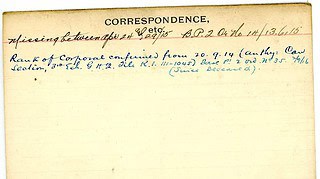 CORRESPONDENCE,
etc.
Missing between Apl 24 B.P.2 Or No 14/13.6.15
Rank of Corporal confirmed from 20.9.14 (Authy: Can
Section, 3rd Ech. G.H.Q. File K.1. 111-1045) Part II Ord. No 35.
(Since Deceased)